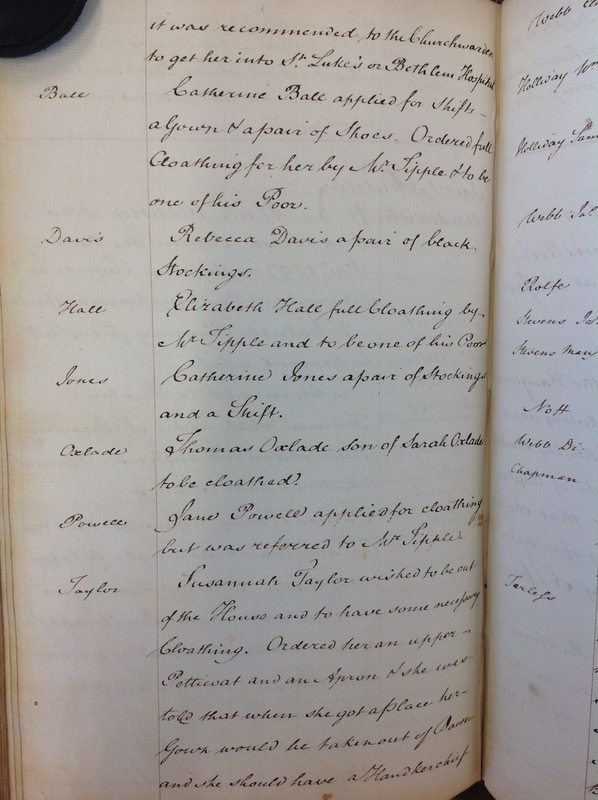 it was recommended to the Churchwarden
to get her into St. Luke's or Bethlem Hospital
Ball
Catherine Ball applied for Shifts -
a Gown & a pair of Shoes. Ordered full
Cloathing for her by Mr. Tipple & to be
one of his Poor.
Davis
Rebecca Davis a pair of black
Stockings.
Hall
Elizabeth Hall full Cloathing by
Mr Tipple and to be one of his Poor
Jones
Catherine Jones a pair of Stockings
and a Shift.
Oxlade
Thomas Oxlade son of Sarah Oxlade
to be cloathed.
Powell
Jane Powell applied for cloathing
but was referred to Mr Tipple.
Taylor
Susannah Taylor wished to be out
of the House and to have some necessary
Cloathing. Ordered her an upper -
Petticoat and an Apron & she was
told that when she got a place her
Gown would be taken out of Pawn
and she should have a Handkerchief
Webb
Holliday Wm
Holliday Sam
Webb Jas
Rolfe
Stevens Jas
Stevens Mary
Nott
Webb Di:
Chapman